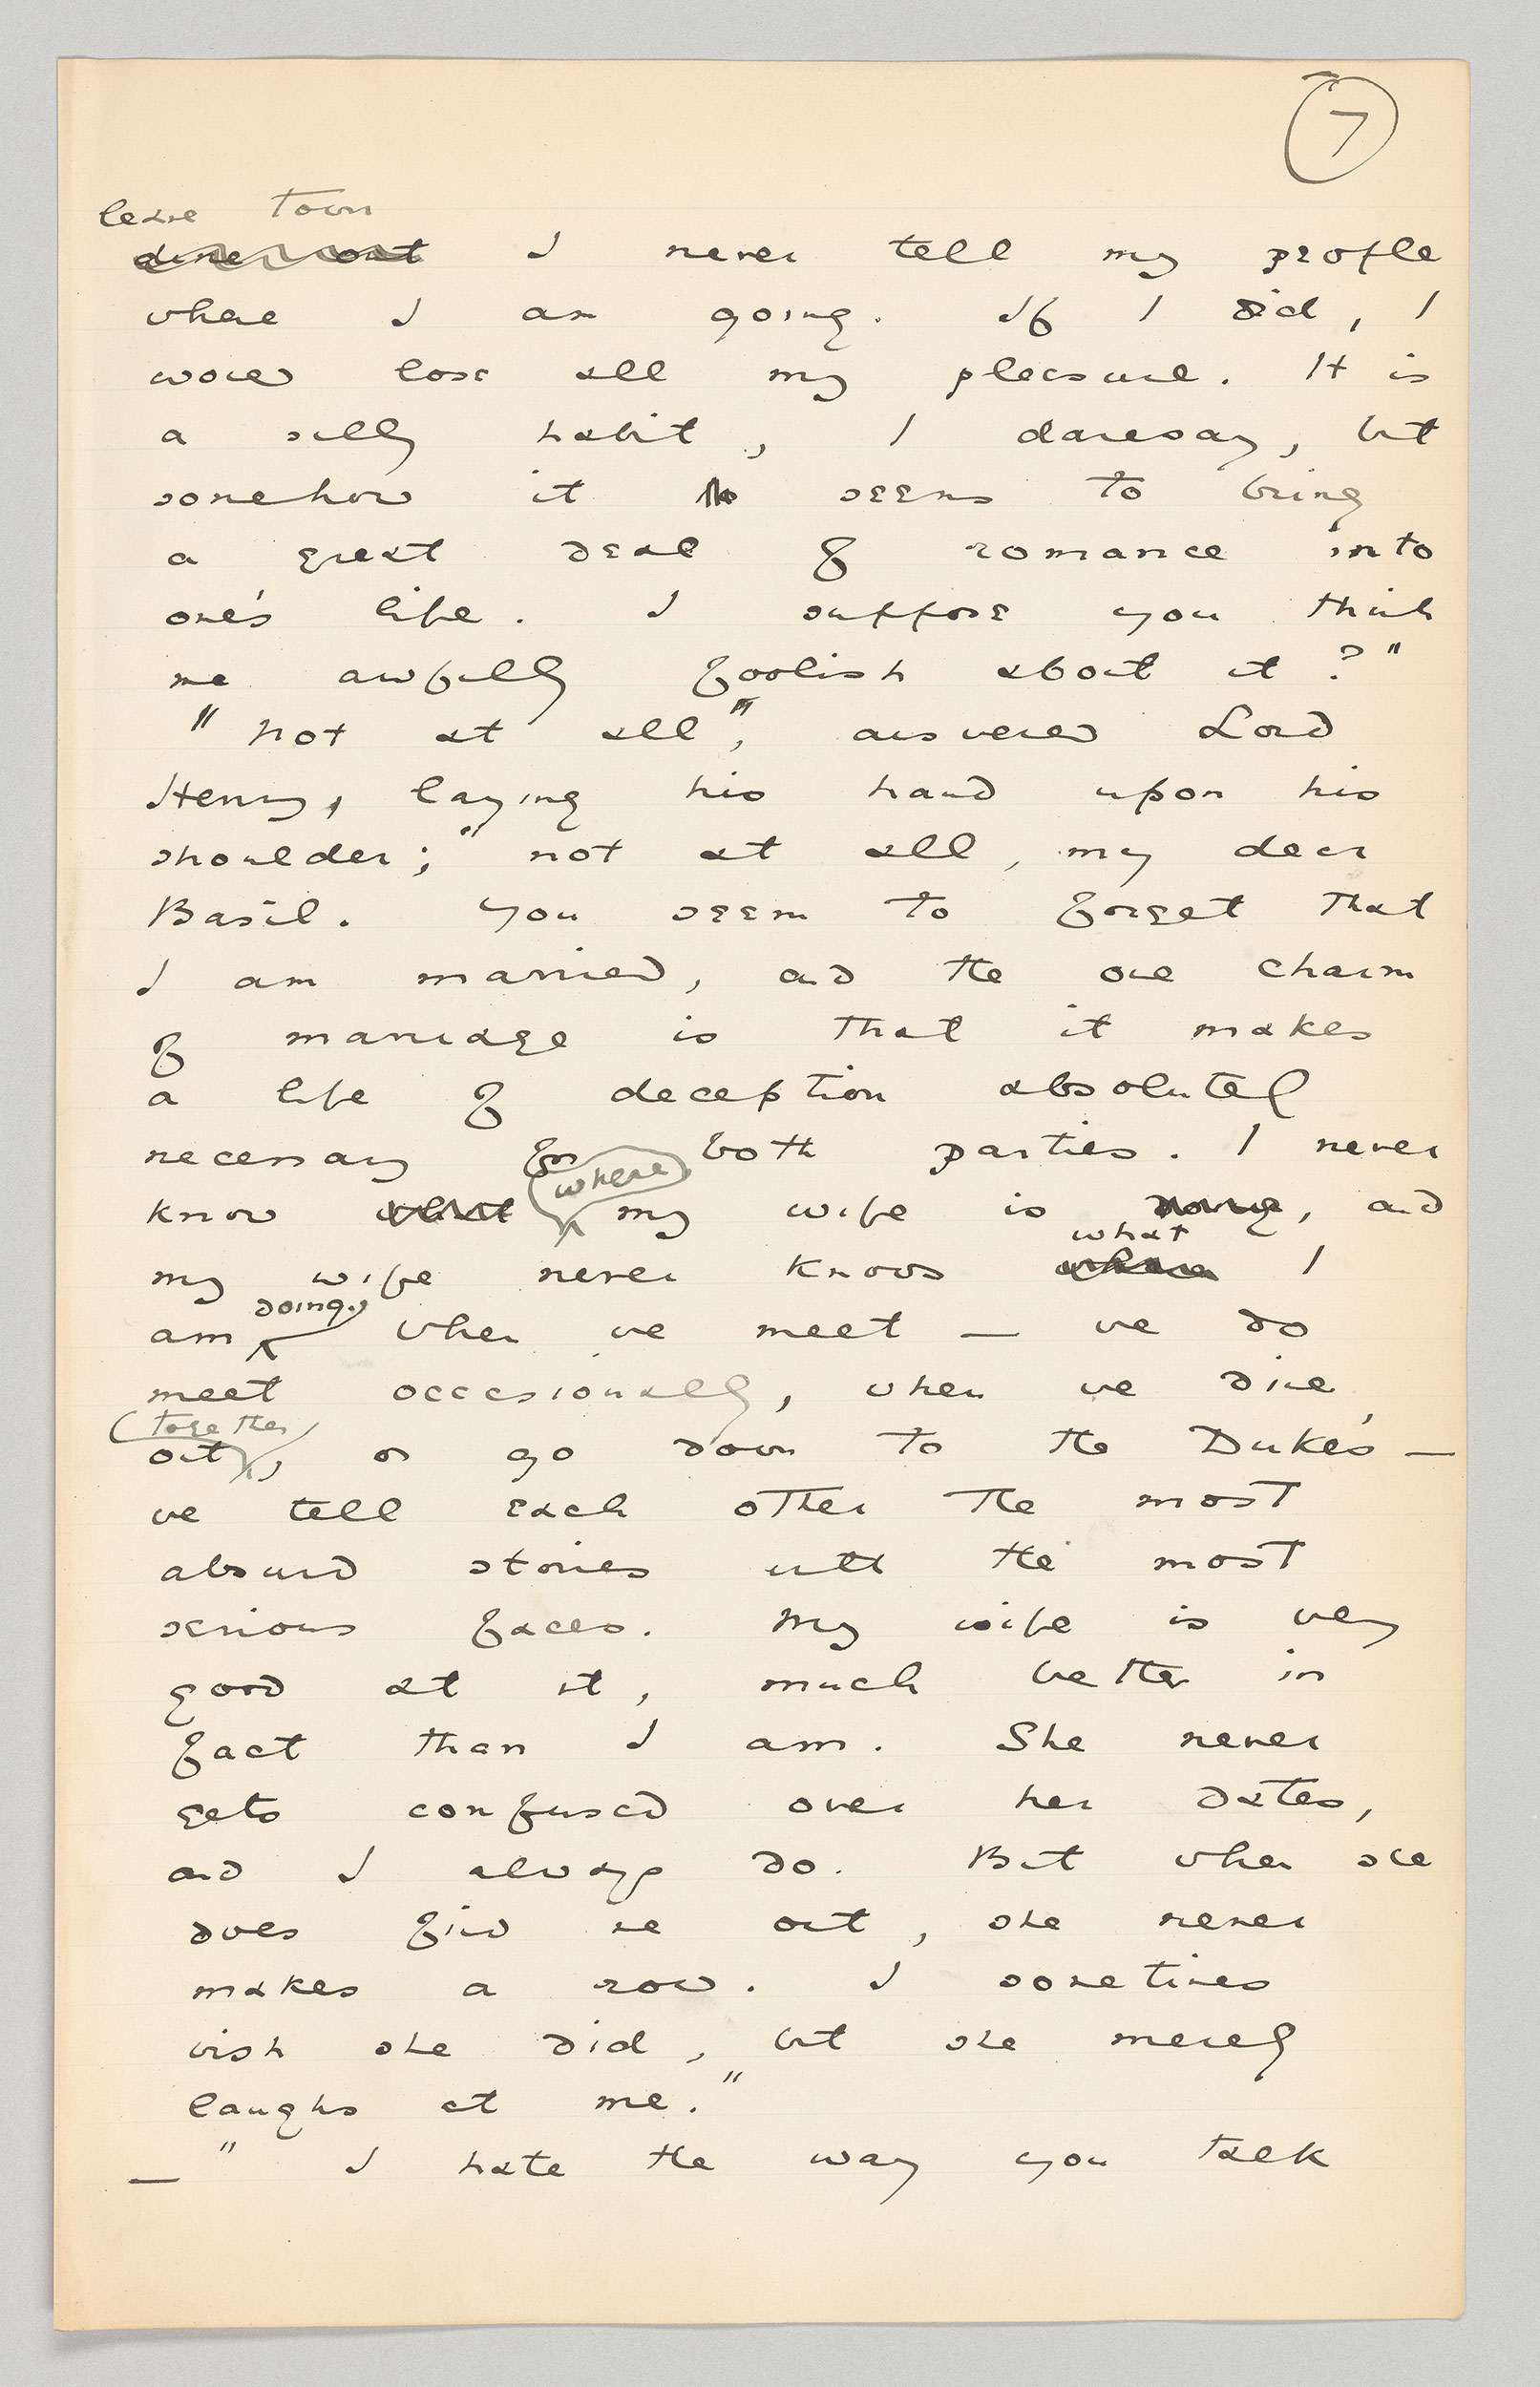 7
leave town
dine out I never tell my people
where I am going. If I did, I
would lose all my pleasure. It is
a silly habit, I daresay, but
somehow it seems to bring
a great deal of romance into
one's life. I suppose you think
me awfully foolish about it?"
"Not at all", answered Lord
Henry, laying his hand upon his
shoulder; "not at all, my dear
Basil. You seem to forget that
I am married, and the one charm
of marriage is that it makes
a life of deception absolutely
necessary for both parties. I never
where
know what my wife is doing, and
what
my wife never knows where I
doing.
am When we meet — we do
meet occasionally, when we dine
together
out, or go down to the Duke's —
we tell each other the most
absurd stories with the most
serious faces. My wife is very
good at it, much better in
fact than I am. She never
gets confused over her dates,
and I always do. But when she
does find me out, she never
makes a row. I sometimes
wish she did, but she merely
laughs at me."
— " I hate the way you talk